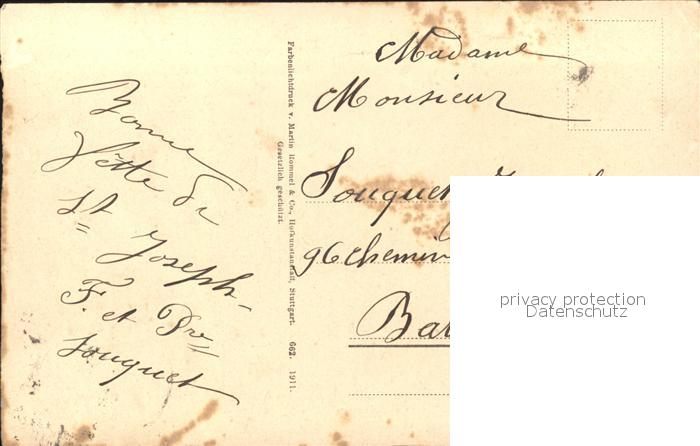 Bonne
fête de
St Joseph
F. et Pre
Souquet
Farbenlichtdruck v. Martin Rommel & Co., Hofkunstanstalt, Stuttgart. 662. 1911.
Gesetzlich geschützt.
Madame
Monsieur
Souquet
96 chemin
privacy protection
Datenschutz